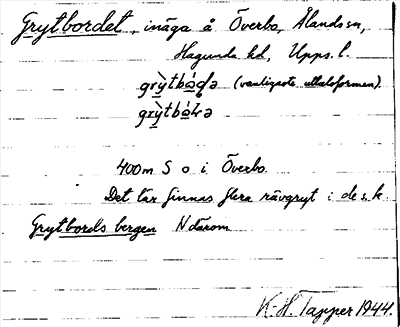 Grytbordet, inäga å Överbo, Ålands sn,
Hagunda hd, Upps. l.
grỳtbọ́ḍə (vanligaste uttalsformen)
grỳtbọ́ɫə
400 m S o i Överbo.
Det lär finnas flera rävgryt i de s. k.
Grytbords bergen N därom
K.-H. Tapper 1944.